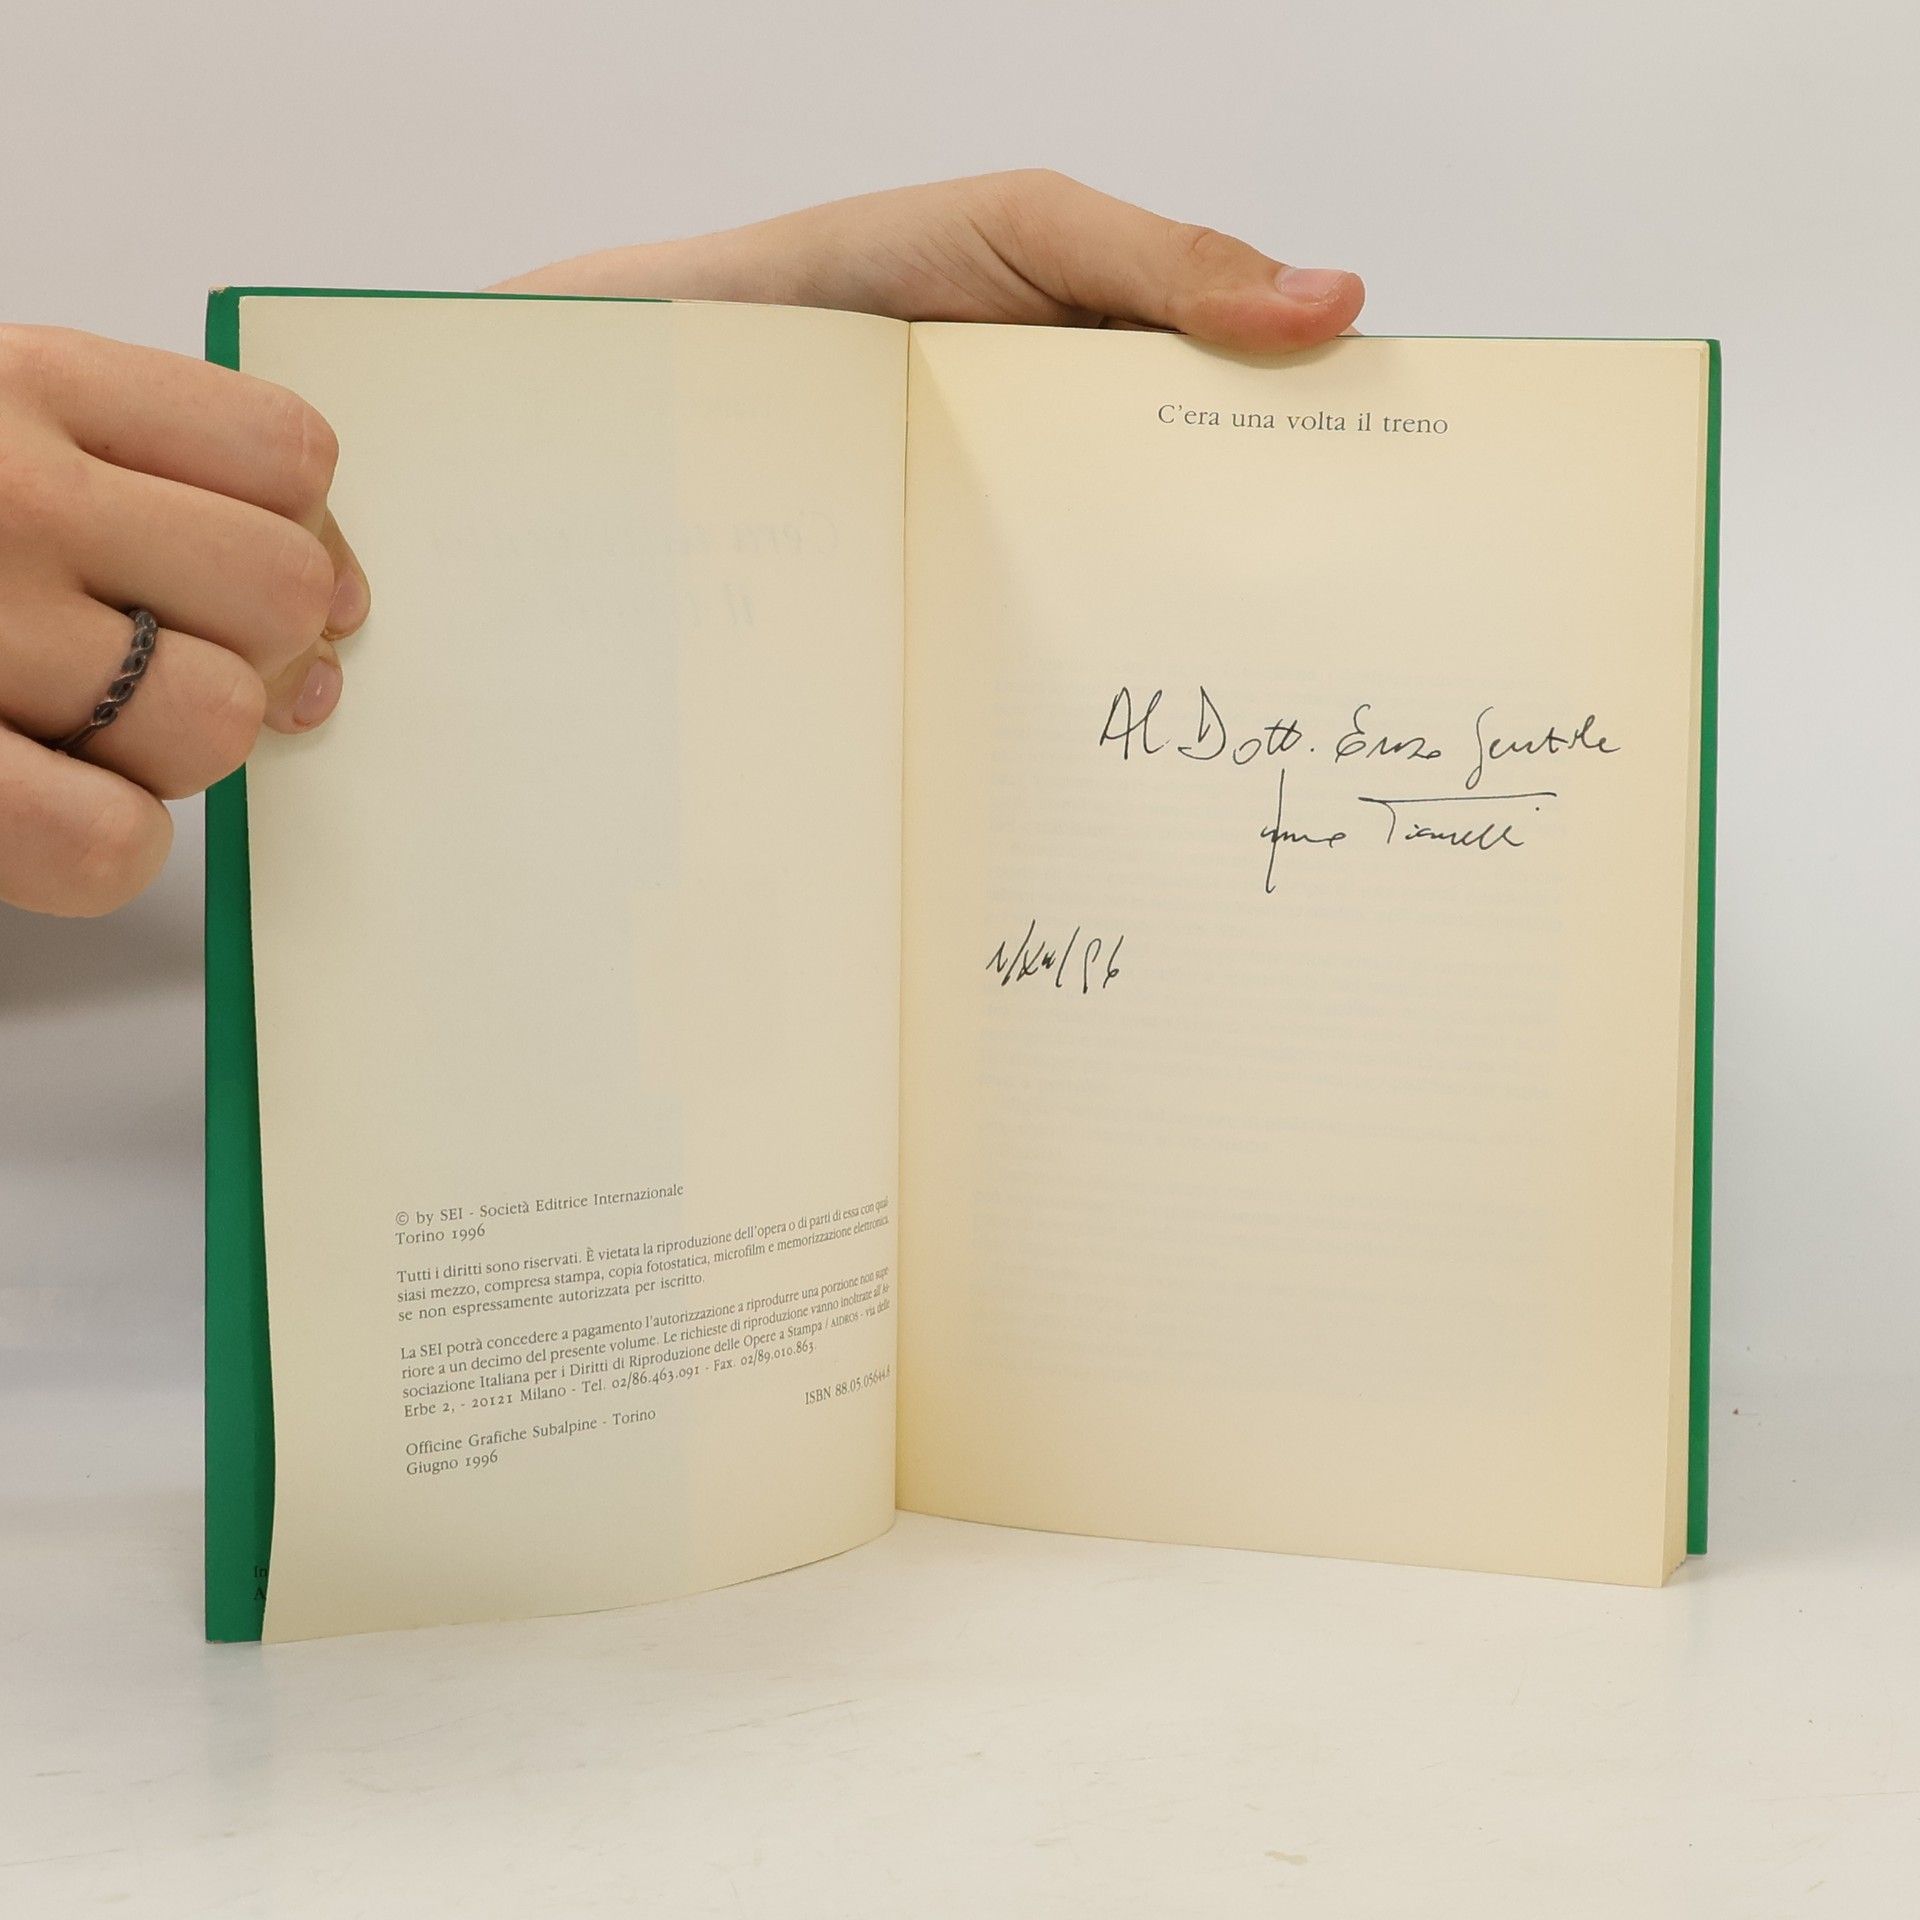 © by SEI - Società Editrice Internazionale
Torino 1996
Tutti i diritti sono riservati. È vietata la riproduzione dell'opera o di parti di essa con qual-
siasi mezzo, compresa stampa, copia fotostatica, microfilm e memorizzazione elettronica,
se non espressamente autorizzata per iscritto.
La SEI potrà concedere a pagamento l'autorizzazione a riprodurre una porzione non supe-
riore a un decimo del presente volume. Le richieste di riproduzione vanno inoltrate all'As-
sociazione Italiana per i Diritti di Riproduzione delle Opere a Stampa / AIDROS - via delle
Erbe 2, - 20121 Milano - Tel. 02/86.463.091 - Fax. 02/89.010.863.
ISBN 88.05.05644.8
Officine Grafiche Subalpine - Torino
Giugno 1996
C'era una volta il treno
Al Dott. Enzo Gentile